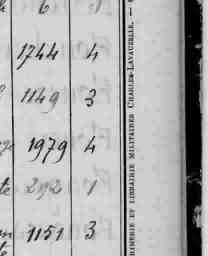 6 1
1744 4
1149 3
1979 4
te 292 1
1151 3
te
RIMERIE ET LIBRAIRIE MILITAIRES CHARLES-LAVAUZELLE. —